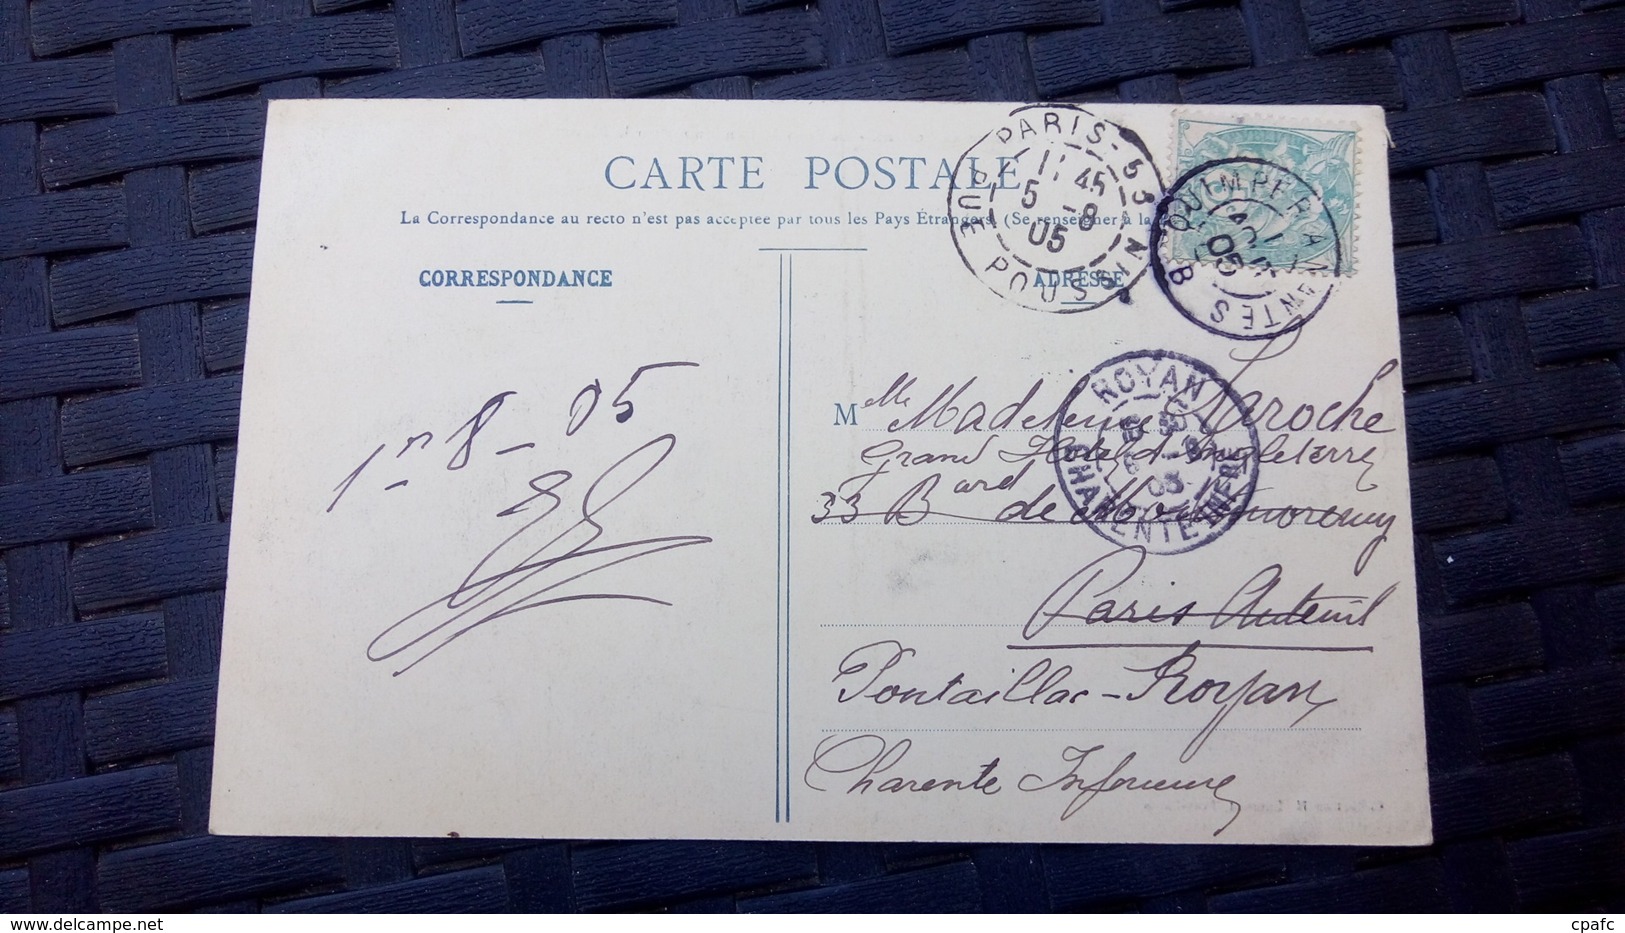 CARTE POSTALE
La Correspondance au recto n'est pas acceptée par tous les Pays Étrangers. (Se renseigner à la
CORRESPONDANCE
ADRESSE
PARIS-53
11 45
5 -8
05
RUE POUSSIN
QUIMPER A NANTES
B
05
ROYAN
05
CHARENTE INFRE
1er 8 - 05
Melle Madeleine Laroche
Grand Hotel d'Angleterre
33 Bard de Montmorency
Paris Auteuil
Pontaillac-Royan
Charente Inférieure
cpafc